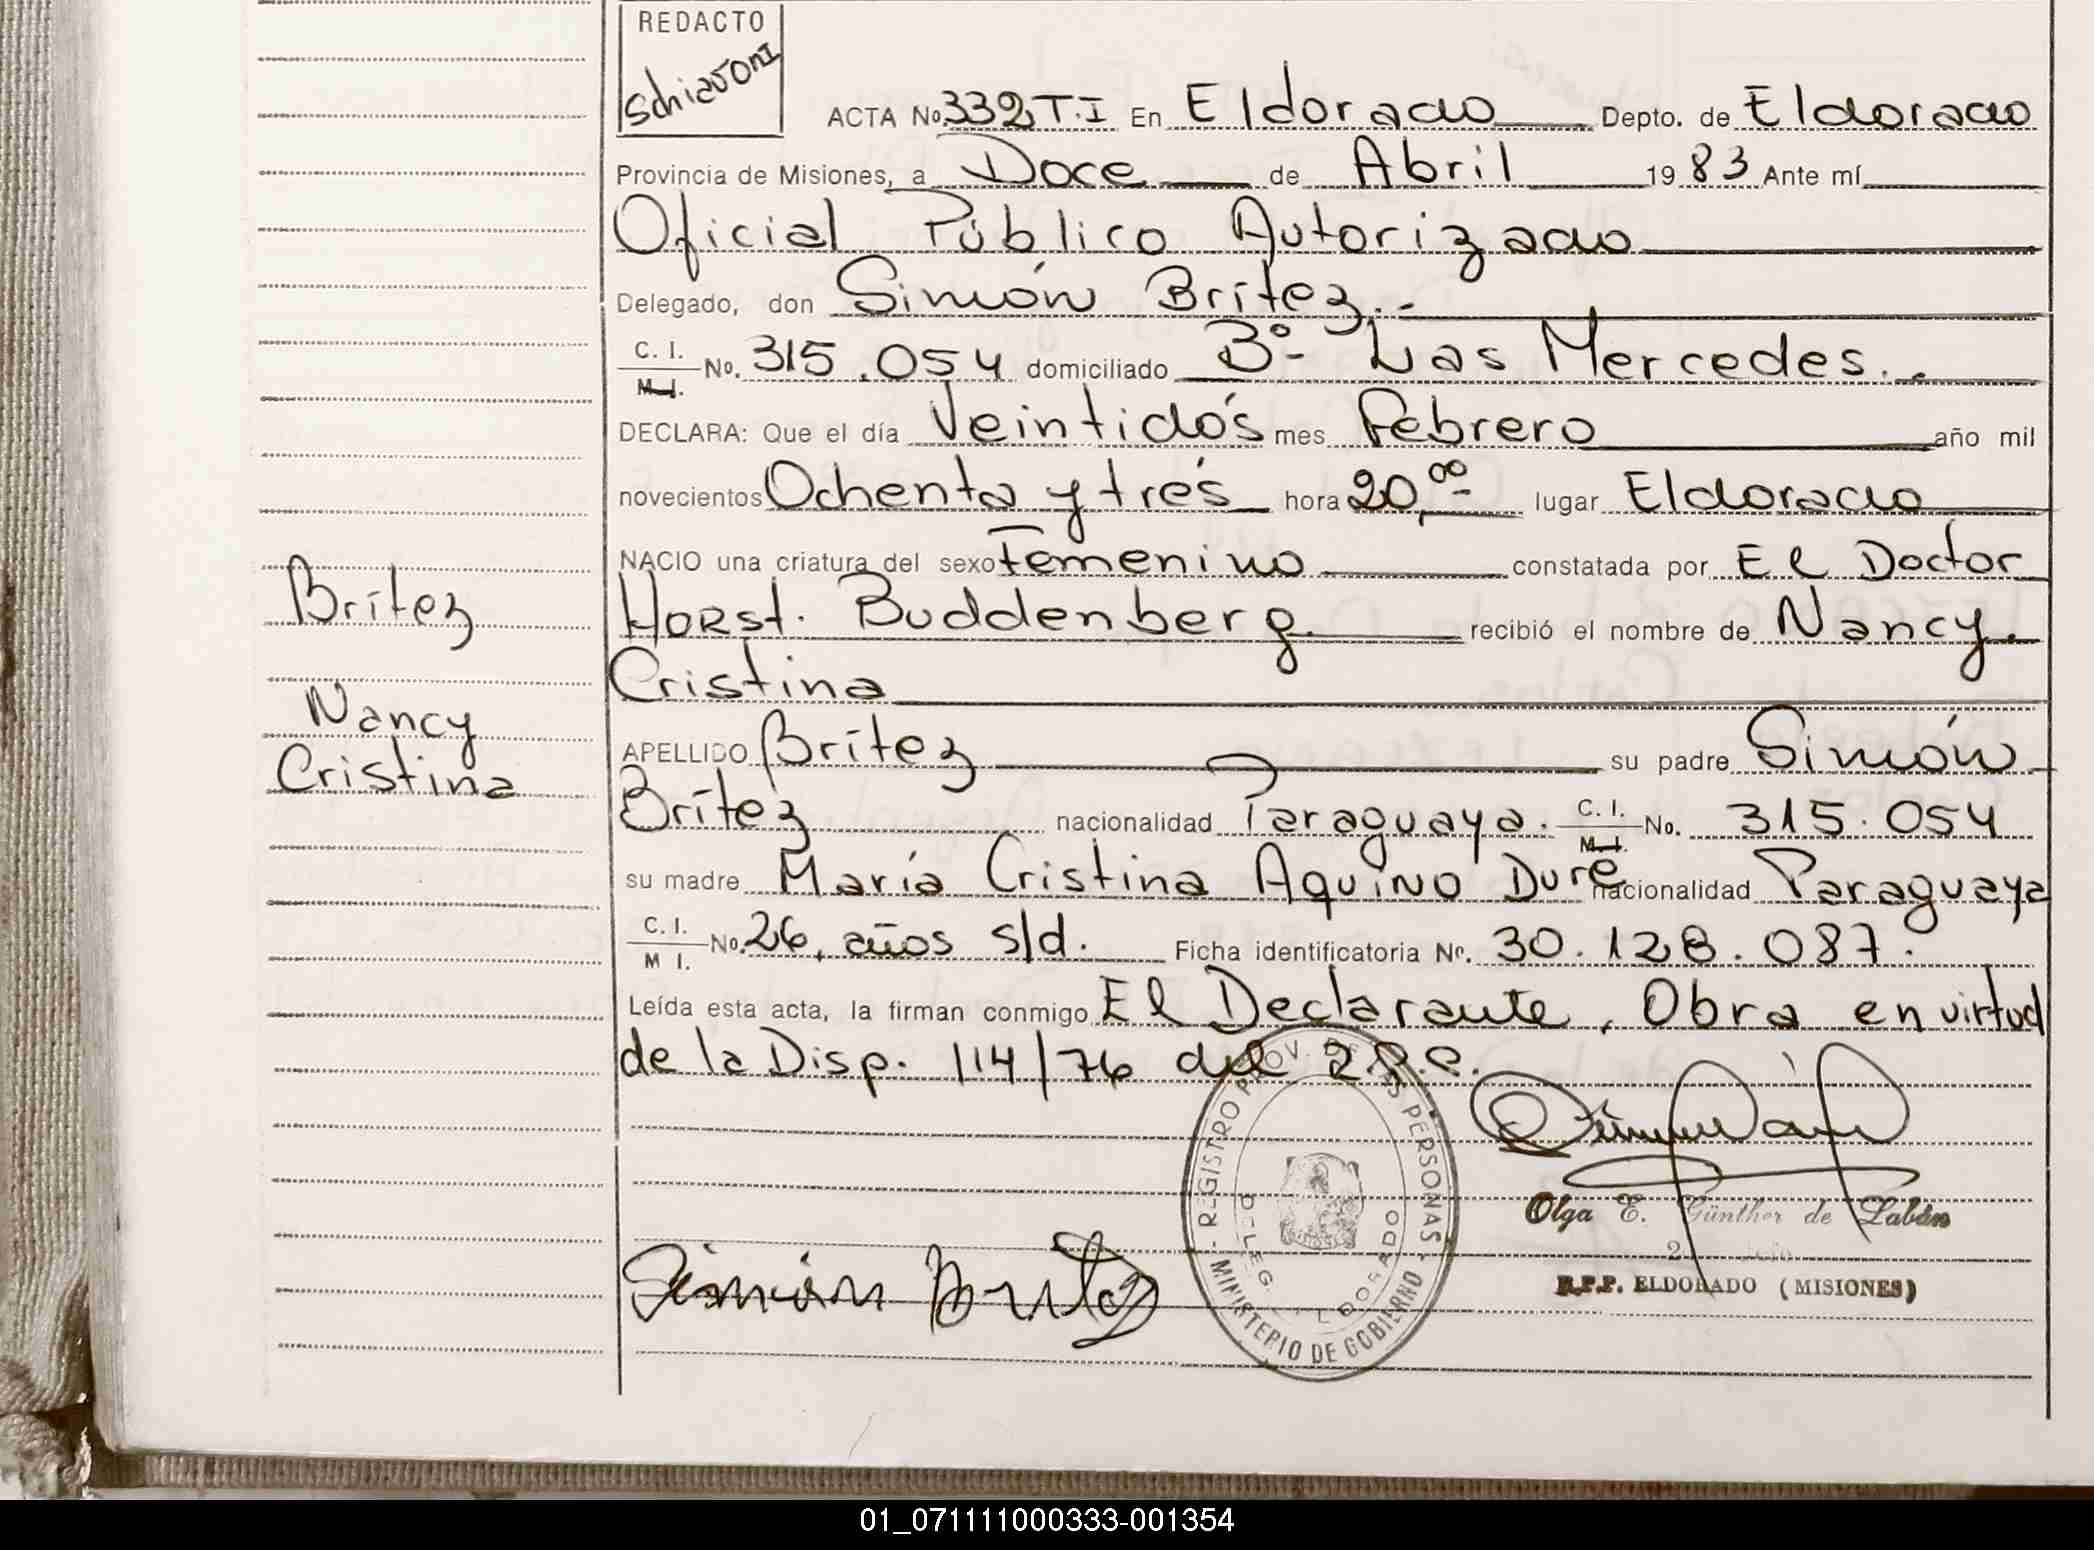 REDACTO
Schiavoni
ACTA No. 332 T.I En Eldorado Depto. de Eldorado
Provincia de Misiones, a Doce de Abril 19 83 Ante mí
Oficial Público Autorizado
Delegado, don Simón Brítez.-
C. I.
M. I. No. 315.054 domiciliado Bº- Las Mercedes..
DECLARA: Que el día Veintidós mes Febrero año mil
novecientos Ochenta y tres hora 20,00- lugar Eldorado
NACIO una criatura del sexo Femenino constatada por El Doctor
Horst. Buddenberg. recibió el nombre de Nancy.
Cristina
APELLIDO Brítez su padre Simón
Brítez nacionalidad Paraguaya. C. I.
M. I. No. 315.054
su madre María Cristina Aquino Duré nacionalidad Paraguaya
C. I.
M I. No. 26, años s/d. Ficha identificatoria Nº. 30.128.087.
Leída esta acta, la firman conmigo El Declarante, Obra en virtud
de la Disp. 114/76 del R.P.
Brítez
Nancy
Cristina
REGISTRO PROV. DE LAS PERSONAS
MINISTERIO DE GOBIERNO
DELEG. ELDORADO
Olga E. Günther de Labán
R.P.P. ELDORADO (MISIONES)
Simón Britez
01_071111000333-001354